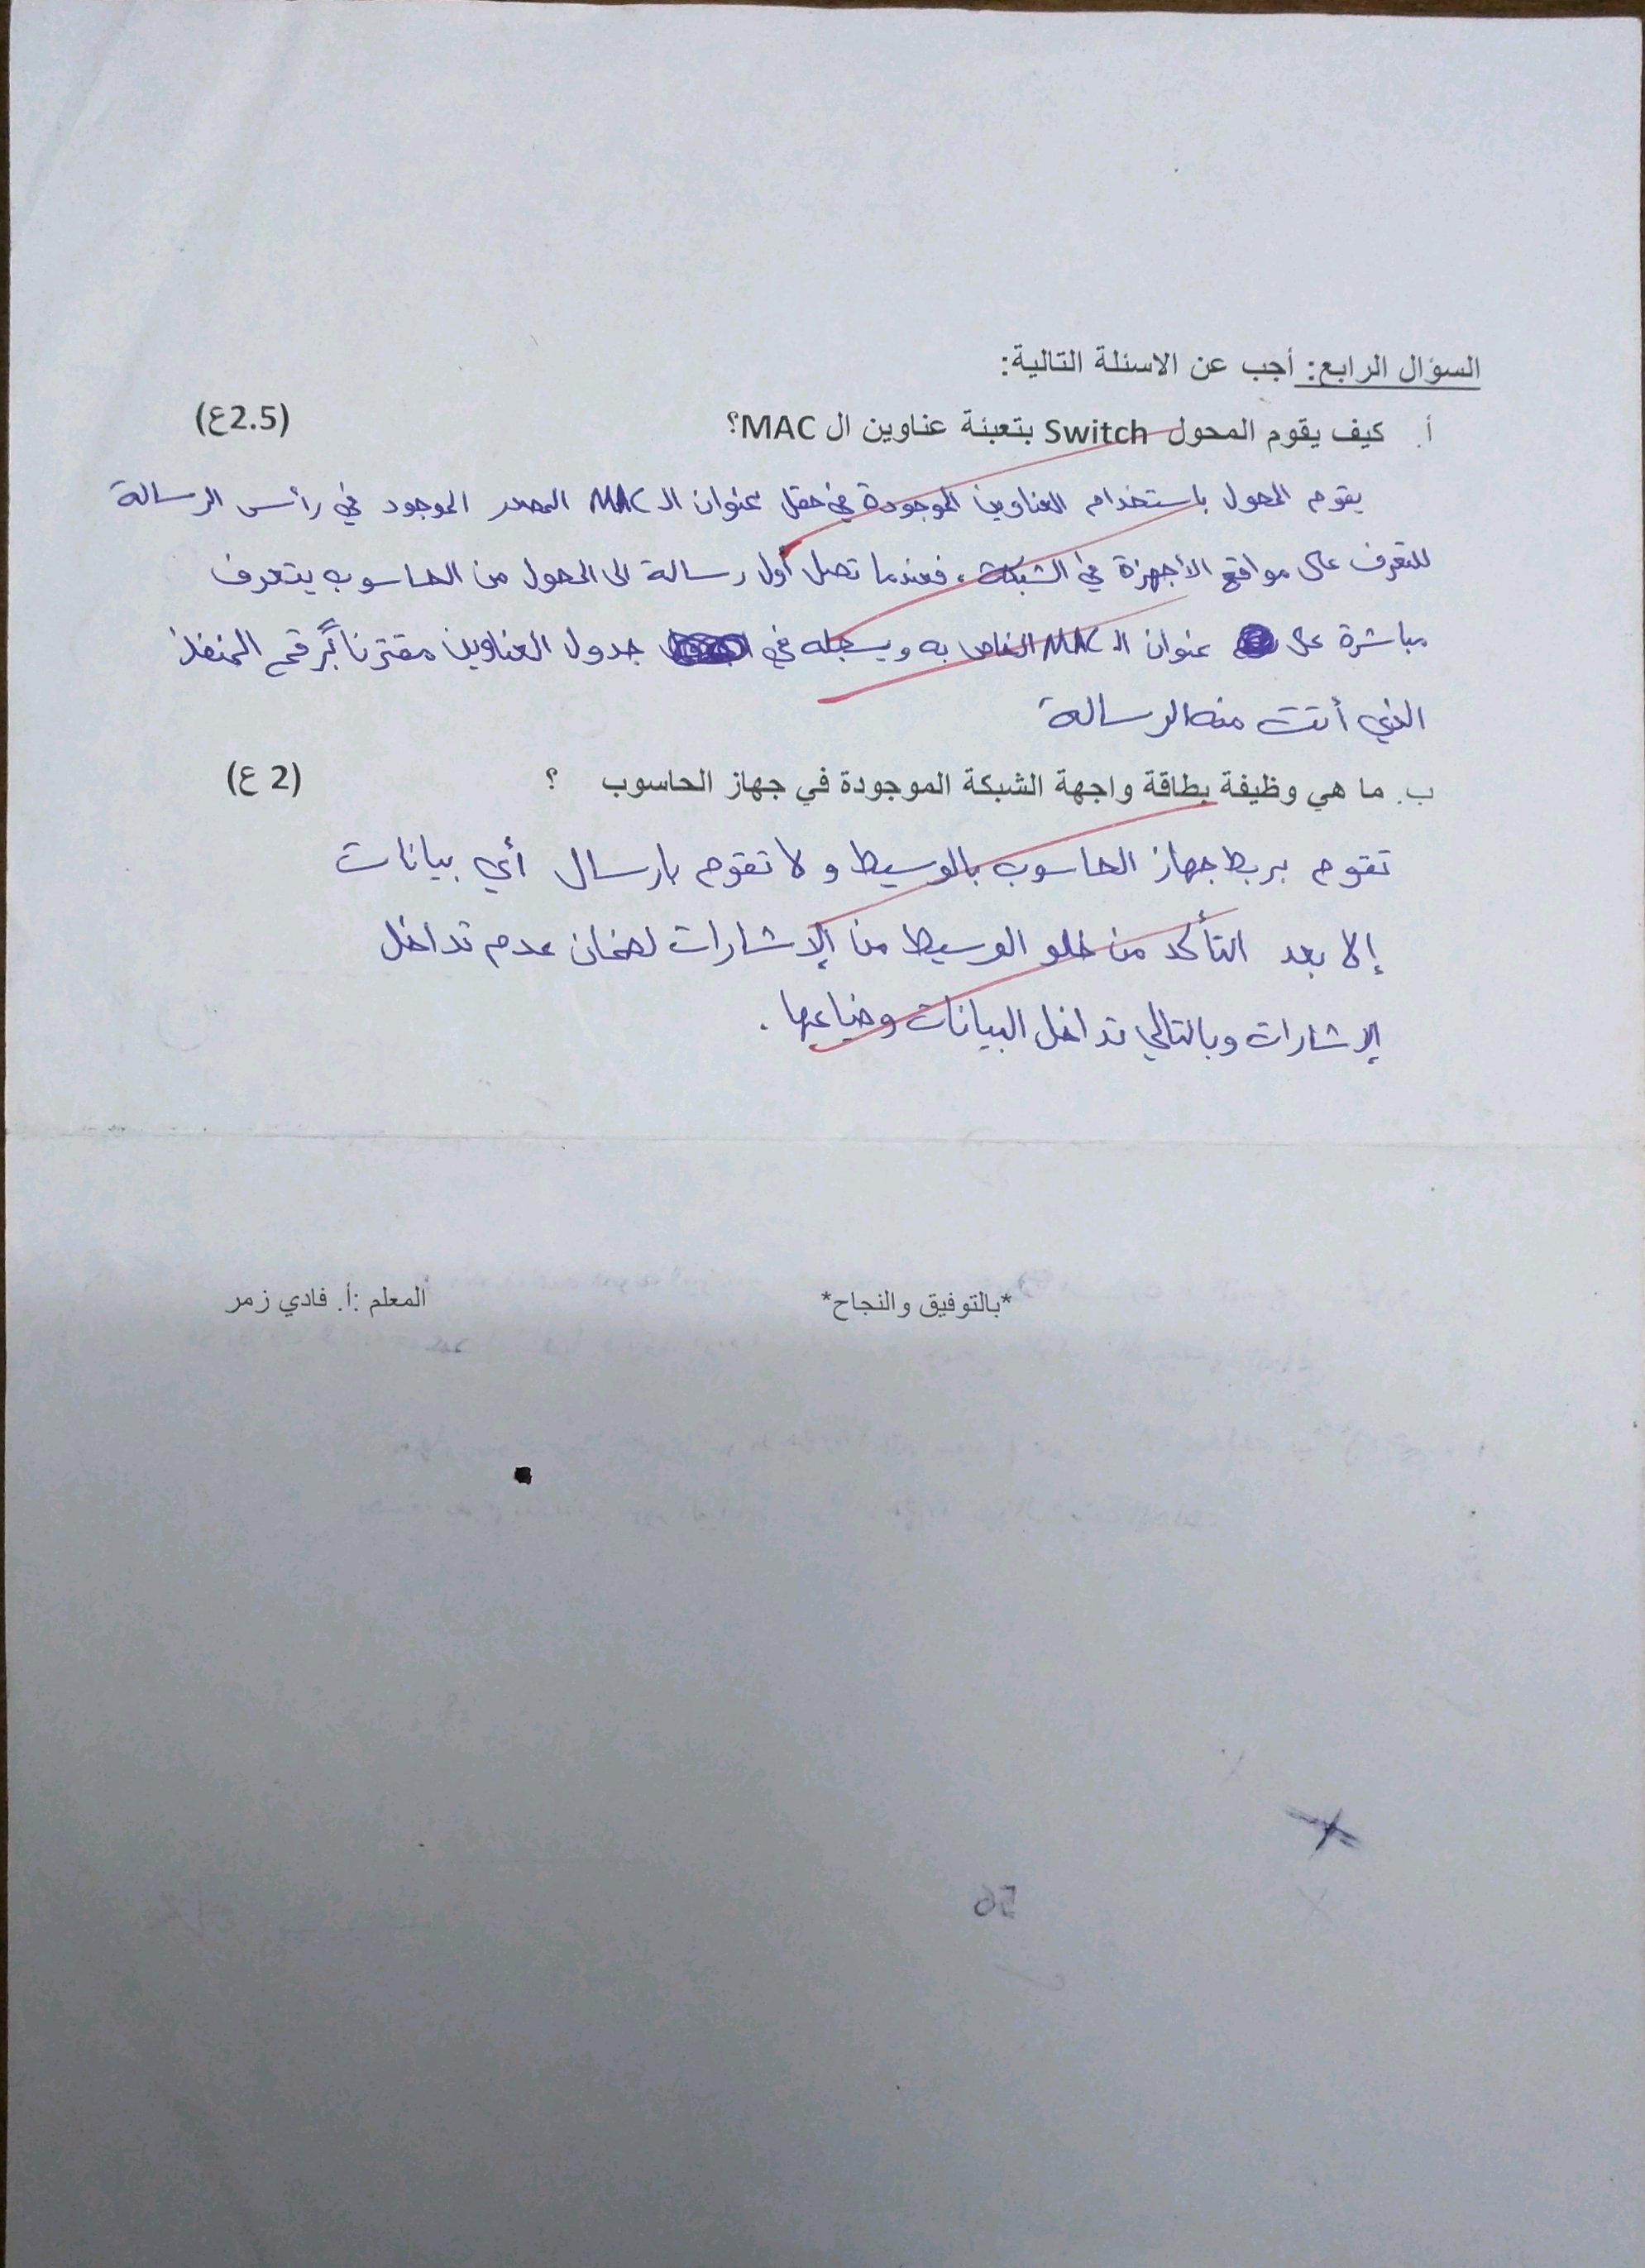 السؤال الرابع: أجب عن الاسئلة التالية:
أ. كيف يقوم المحول Switch بتعبئة عناوين ال MAC؟ (2.5ع)
يقوم المحول باستخدام العناوين الموجودة في حقل عنوان الـ MAC المصدر الموجود في رأس الرسالة
للتعرف على مواقع الأجهزة في الشبكة، فعندما تصل أول رسالة الى المحول من الحاسوب يتعرف
مباشرة على عنوان الـ MAC الخاص به ويسجله في جدول العناوين مقترناً برقم المنفذ
الذي أتت منه الرسالة
ب. ما هي وظيفة بطاقة واجهة الشبكة الموجودة في جهاز الحاسوب ؟ (2 ع)
تقوم بربط جهاز الحاسوب بالوسيط و لا تقوم بارسال أي بيانات
إلا بعد التأكد من خلو الوسيط من الإشارات لضمان عدم تداخل
الإشارات وبالتالي تداخل البيانات وضياعها.
*بالتوفيق والنجاح* المعلم :أ. فادي زمر